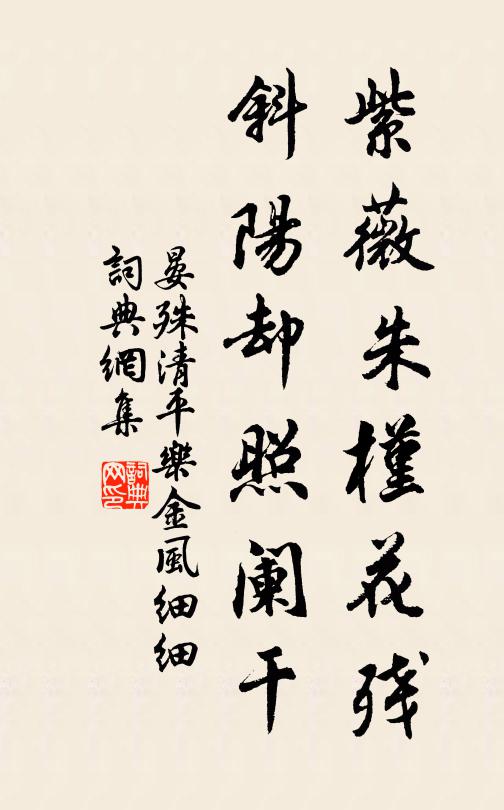 紫薇朱槿花残
斜陽却照阑干
晏殊清平樂金風細細
詞典網集
詞典网印